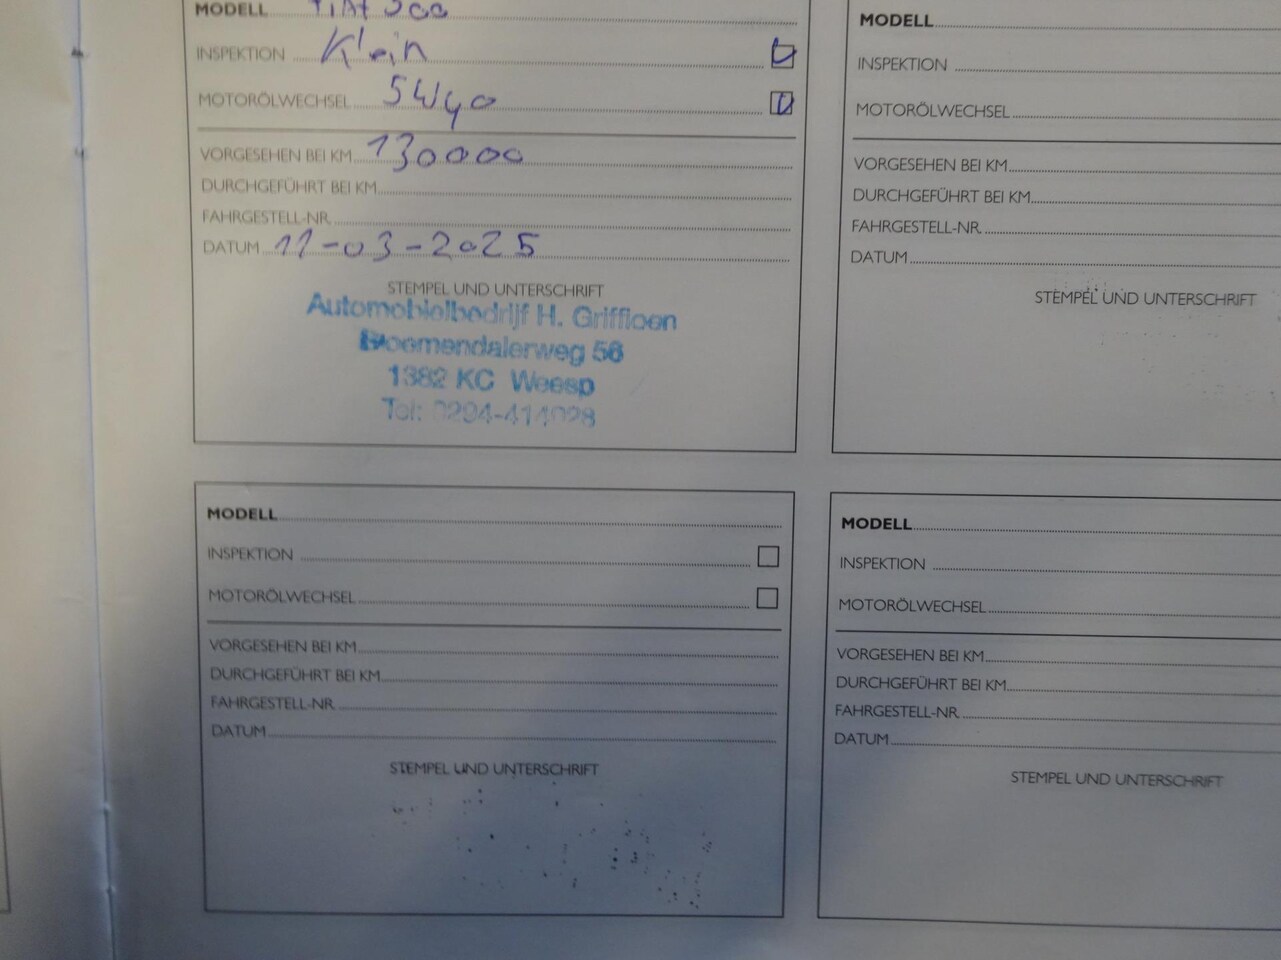 MODELL FIAT 500
INSPEKTION Klein
MOTORÖLWECHSEL 5W40
VORGESEHEN BEI KM 130000
DURCHGEFÜHRT BEI KM
FAHRGESTELL-NR.
DATUM 11-03-2025
STEMPEL UND UNTERSCHRIFT
Automobielbedrijf H. Griffioen
Bloemendalerweg 56
1382 KC Weesp
Tel: 0294-414028
MODELL
INSPEKTION
MOTORÖLWECHSEL
VORGESEHEN BEI KM
DURCHGEFÜHRT BEI KM
FAHRGESTELL-NR.
DATUM
STEMPEL UND UNTERSCHRIFT
MODELL
INSPEKTION
MOTORÖLWECHSEL
VORGESEHEN BEI KM
DURCHGEFÜHRT BEI KM
FAHRGESTELL-NR.
DATUM
STEMPEL UND UNTERSCHRIFT
MODELL
INSPEKTION
MOTORÖLWECHSEL
VORGESEHEN BEI KM
DURCHGEFÜHRT BEI KM
FAHRGESTELL-NR.
DATUM
STEMPEL UND UNTERSCHRIFT